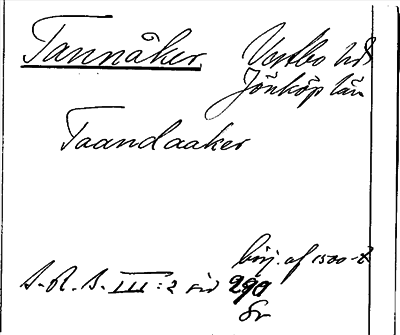 Tannåker Vestbo hd
Jönköp län
Taandaaker
börj. af 1500-t
S.R.S. III:2 sid 290
Sr